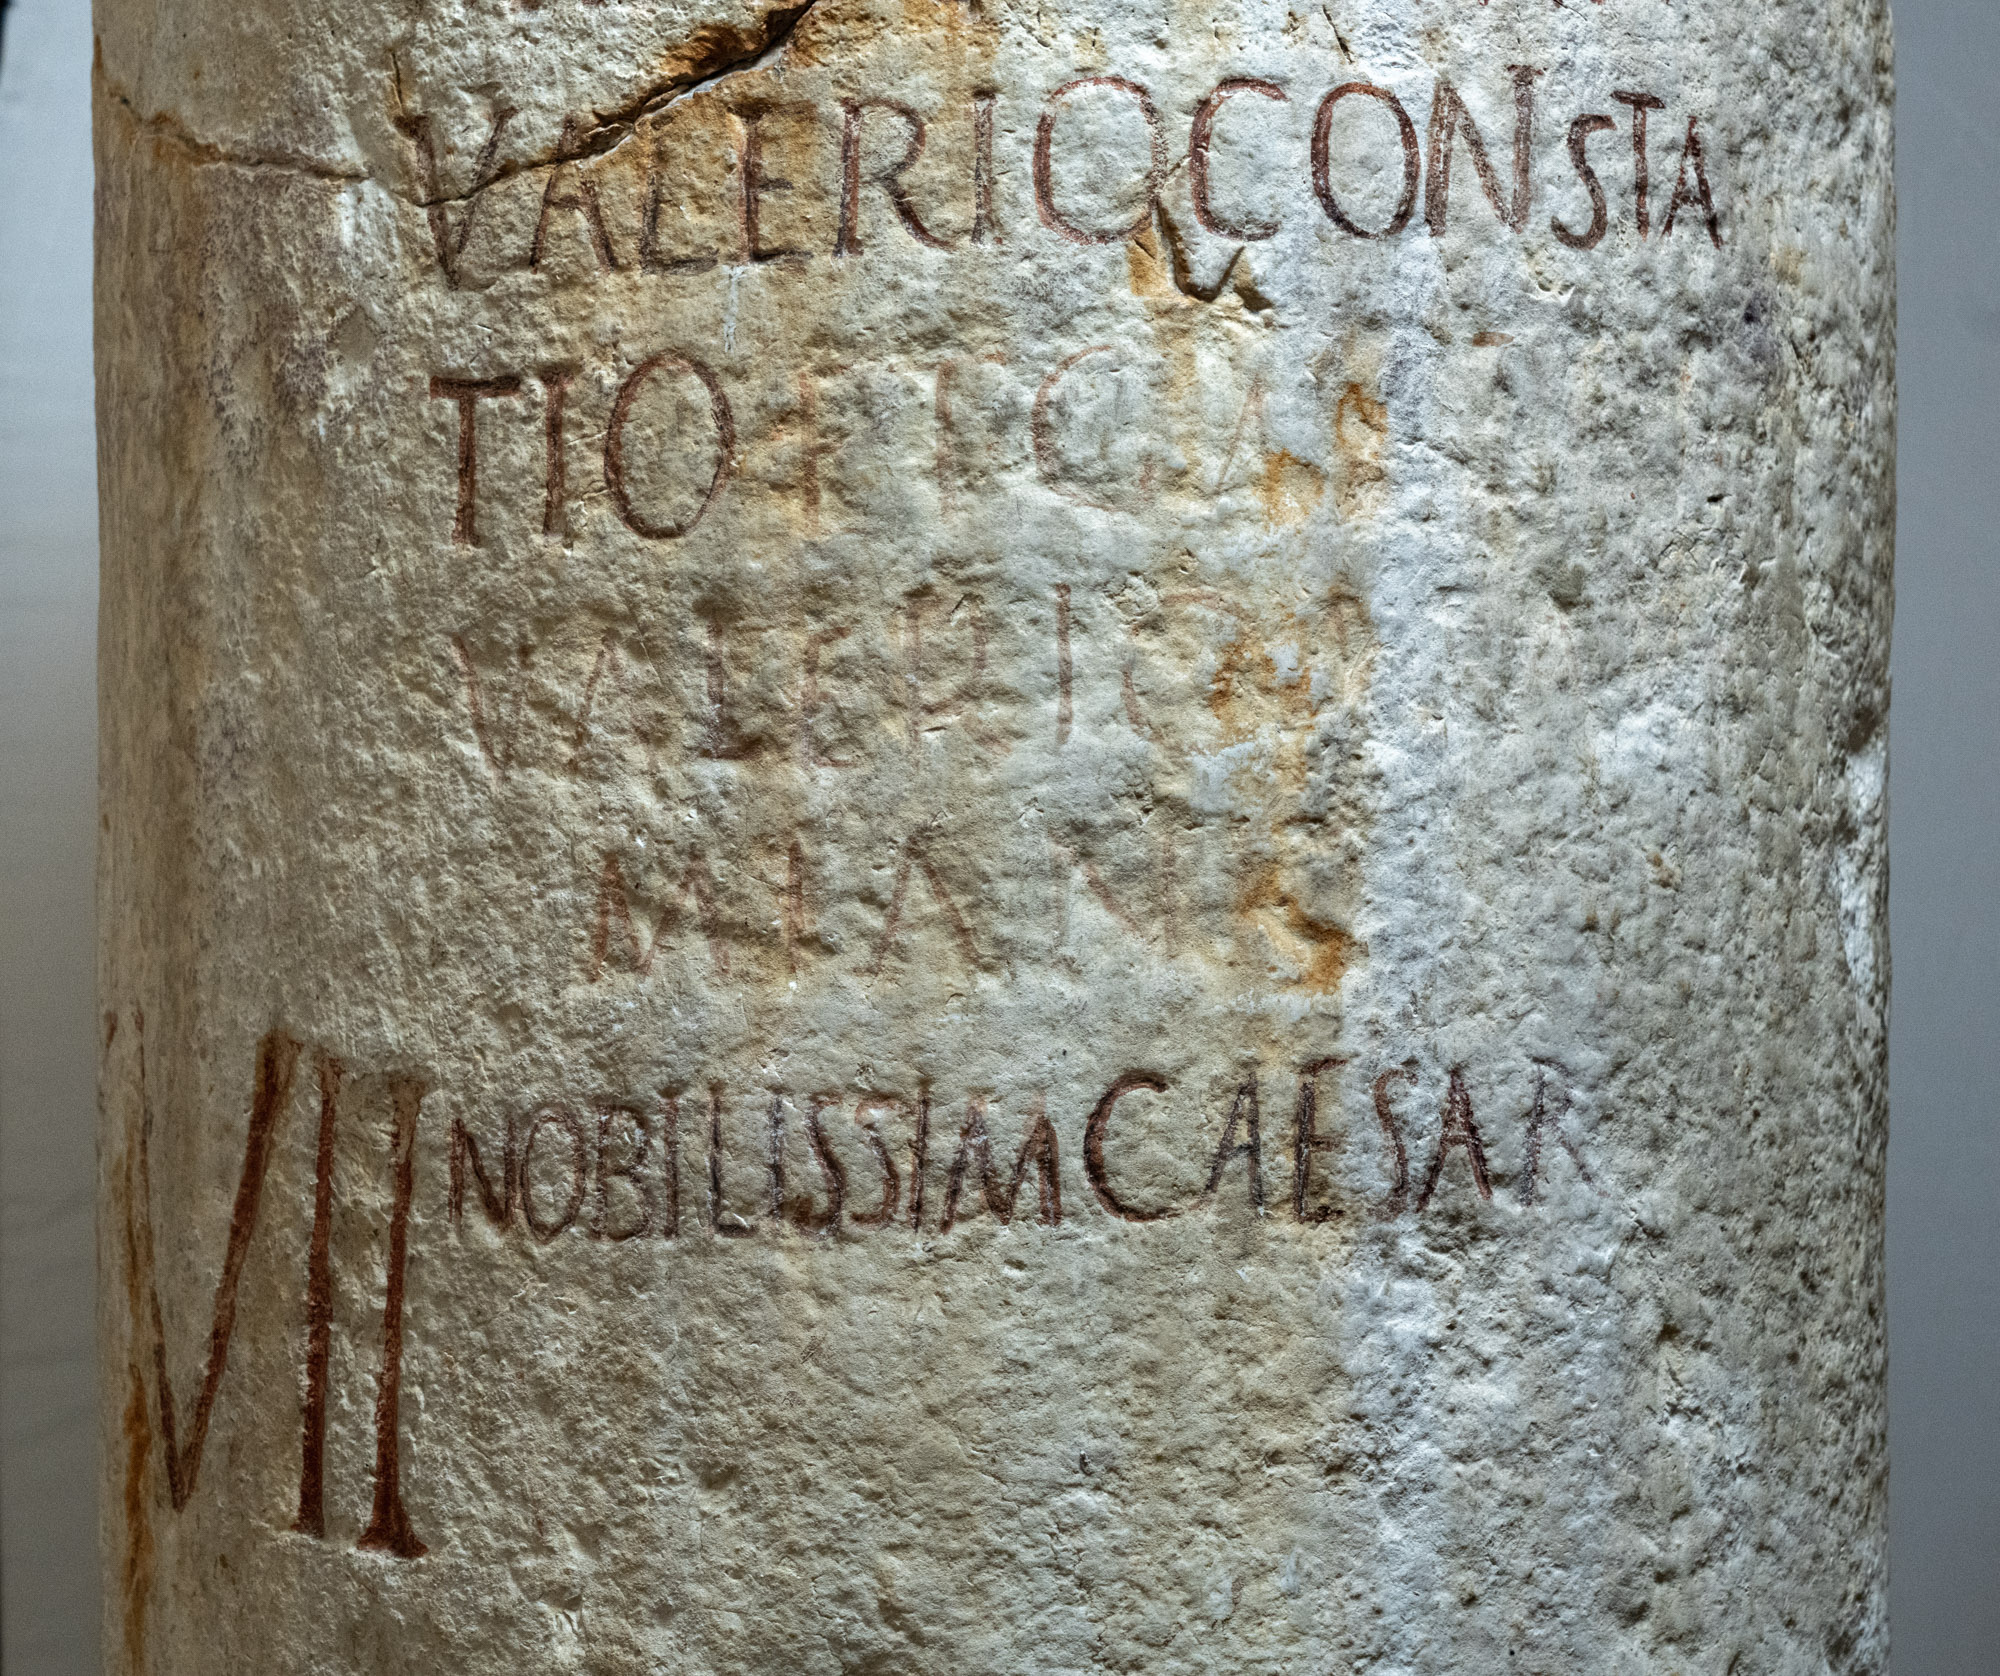 VALERIO CONSTA
TIO ET GA
VALERIO
MIAN
VII NOBILISSIM CAESAR